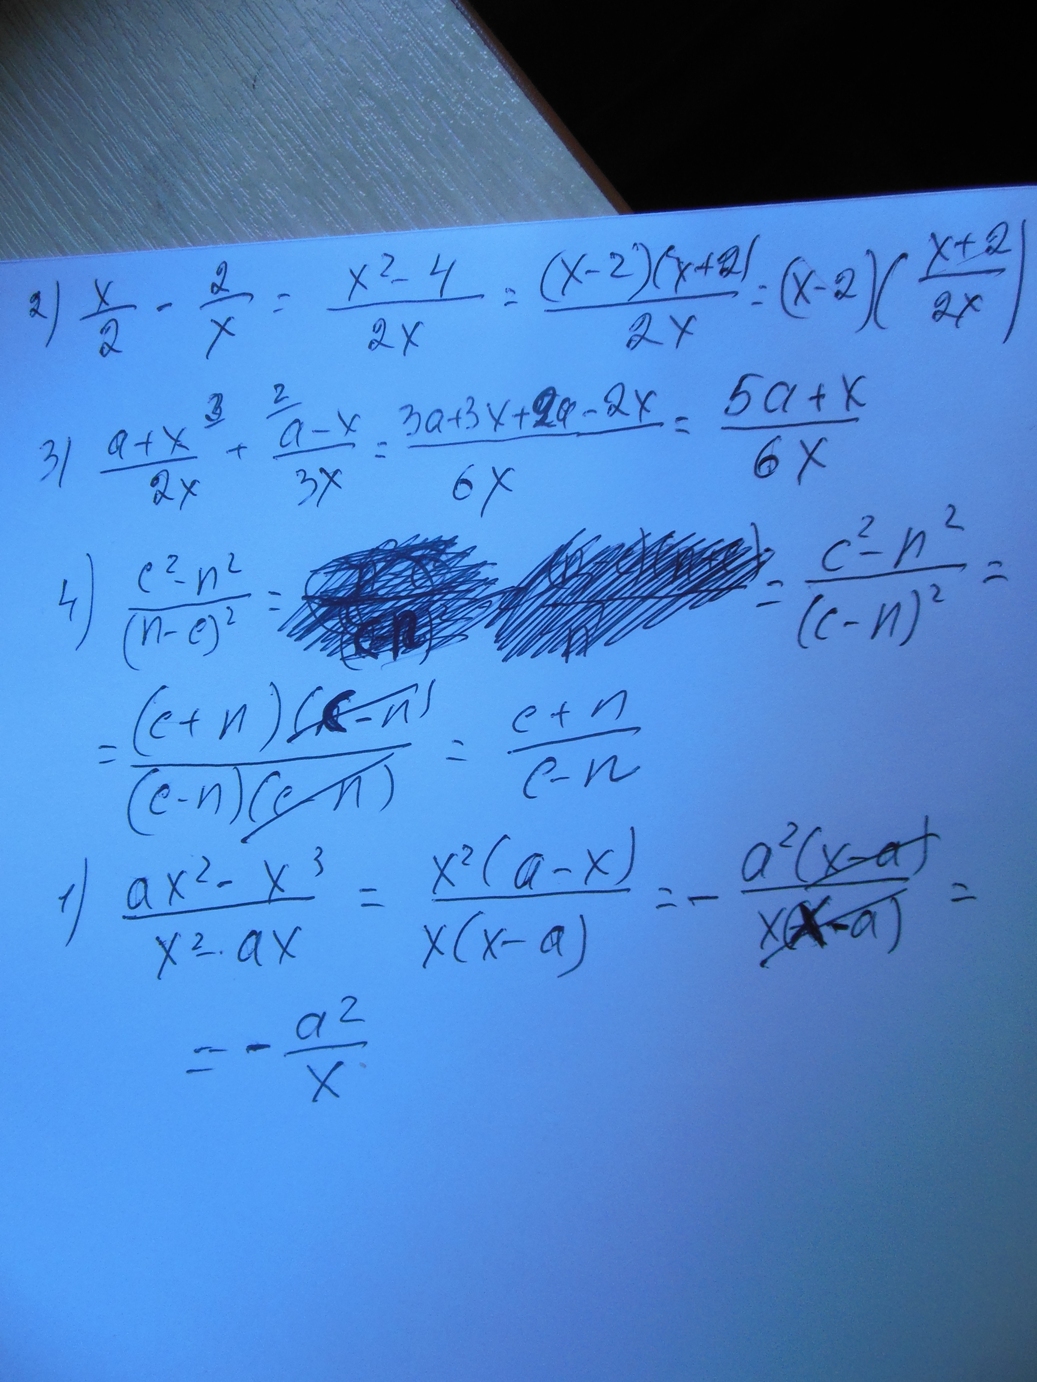 2) x/2 - 2/x = x² - 4/2x = (x-2)(x+2)/2x = (x-2)(x+2/2x)
3) a+x/2x ³ + ² a-x/3x = 3a+3x+2a-2x/6x = 5a+x/6x
4) c²-n²/(n-c)² = = c²-n²/(c-n)² =
= (c+n)(c-n)/(c-n)(c-n) = c+n/c-n
1) ax²-x³/x²-ax = x²(a-x)/x(x-a) = - a²(x-a)/x(x-a) =
= - a²/x